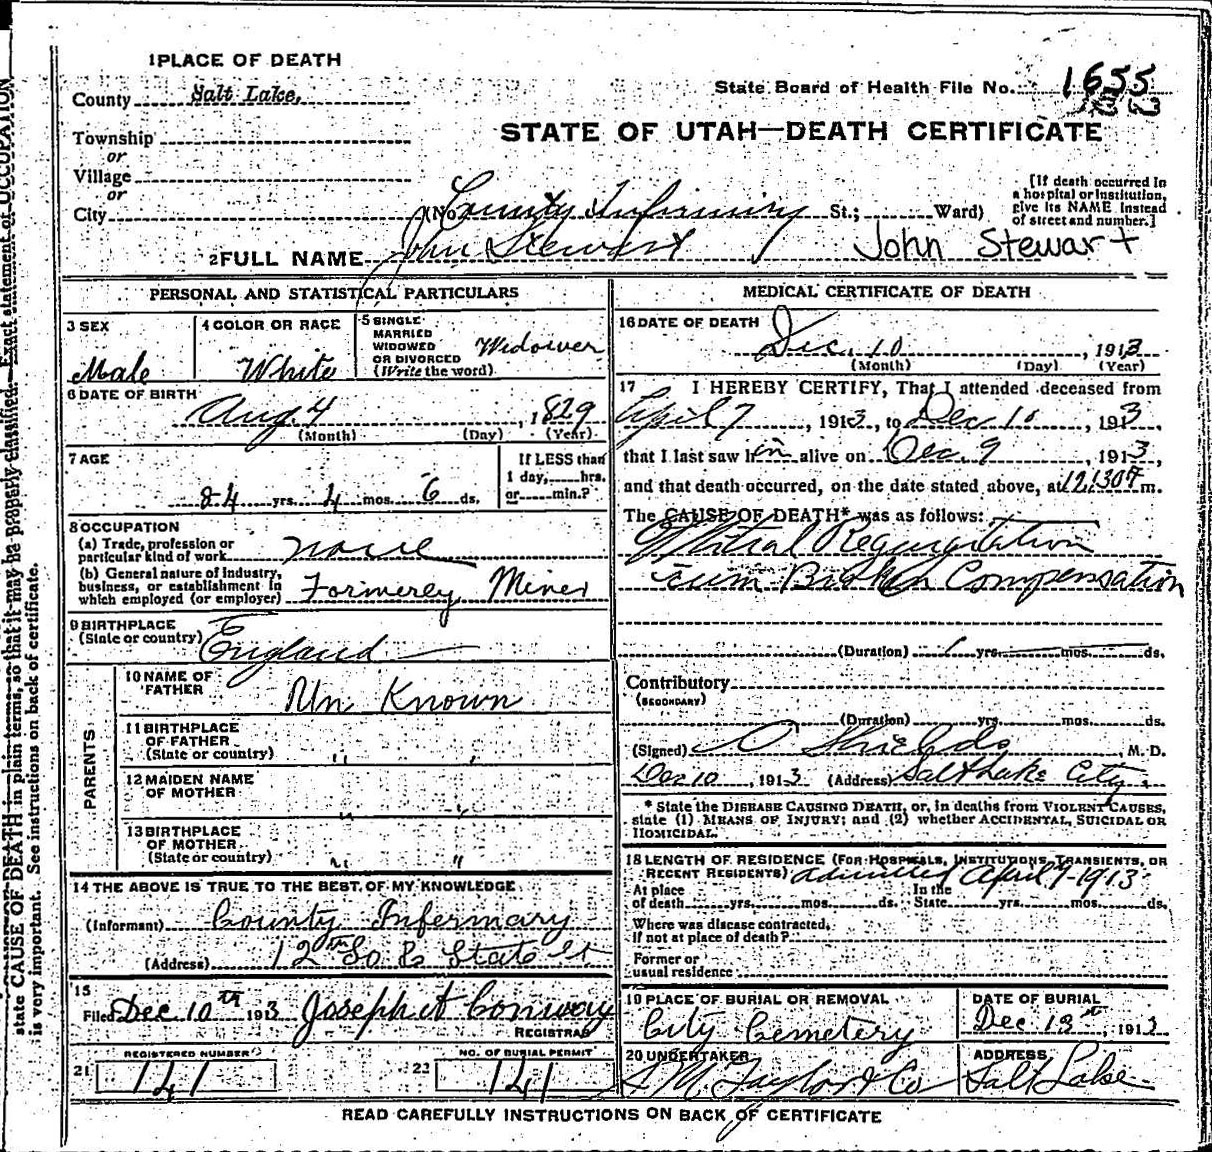 1 PLACE OF DEATH
County Salt Lake,
State Board of Health File No. 1655
Township
or
STATE OF UTAH—DEATH CERTIFICATE
Village
or
City (No. County Infirmiry St.; Ward)
[If death occurred in
a hospital or institution,
give its NAME instead
of street and number.]
2 FULL NAME John Stewart John Stewart
PERSONAL AND STATISTICAL PARTICULARS
3 SEX
Male
4 COLOR OR RACE
White
5 SINGLE
MARRIED
WIDOWED
OR DIVORCED
(Write the word)
Widower
6 DATE OF BIRTH
Aug. 4, 1829
(Month) (Day) (Year)
7 AGE
84 yrs. 4 mos. 6 ds.
If LESS than
1 day, hrs.
or min.?
8 OCCUPATION
(a) Trade, profession or
particular kind of work none
(b) General nature of industry,
business, or establishment in
which employed (or employer) Formerly Miner
9 BIRTHPLACE
(State or country) England
PARENTS
10 NAME OF
FATHER Un Known
11 BIRTHPLACE
OF FATHER
(State or country) " "
12 MAIDEN NAME
OF MOTHER " "
13 BIRTHPLACE
OF MOTHER
(State or country) " "
14 THE ABOVE IS TRUE TO THE BEST OF MY KNOWLEDGE
(Informant) County Infermary
(Address) 12th So & State St
15
Filed Dec 10th 1913 Joseph A Conway
REGISTRAR
REGISTERED NUMBER
21 141
NO. OF BURIAL PERMIT
22 141
MEDICAL CERTIFICATE OF DEATH
16 DATE OF DEATH
Dec. 10, 1913
(Month) (Day) (Year)
17 I HEREBY CERTIFY, That I attended deceased from
April 7, 1913, to Dec 10, 1913,
that I last saw him alive on Dec. 9, 1913,
and that death occurred, on the date stated above, at 12,30 m.
The CAUSE OF DEATH* was as follows:
Mitral Regurgitation
cum Broken Compensation
(Duration) 1 yrs. mos. ds.
Contributory
(SECONDARY)
(Duration) yrs. mos. ds.
(Signed) Shields, M. D.
Dec 10, 1913 (Address) Salt Lake City
* State the DISEASE CAUSING DEATH, or, in deaths from VIOLENT CAUSES,
state (1) MEANS OF INJURY; and (2) whether ACCIDENTAL, SUICIDAL OR
HOMICIDAL.
18 LENGTH OF RESIDENCE (FOR HOSPITALS, INSTITUTIONS, TRANSIENTS, OR
RECENT RESIDENTS) admitted April 7-1913
At place
of death yrs. mos. ds.
In the
State yrs. mos. ds.
Where was disease contracted,
if not at place of death?
Former or
usual residence
19 PLACE OF BURIAL OR REMOVAL
City Cemetery
DATE OF BURIAL
Dec 13th, 1913
20 UNDERTAKER
S M Taylor & Co
ADDRESS
Salt Lake
READ CAREFULLY INSTRUCTIONS ON BACK OF CERTIFICATE
state CAUSE OF DEATH in plain terms, so that it may be properly classified. Exact statement of OCCUPATION
is very important. See instructions on back of certificate.